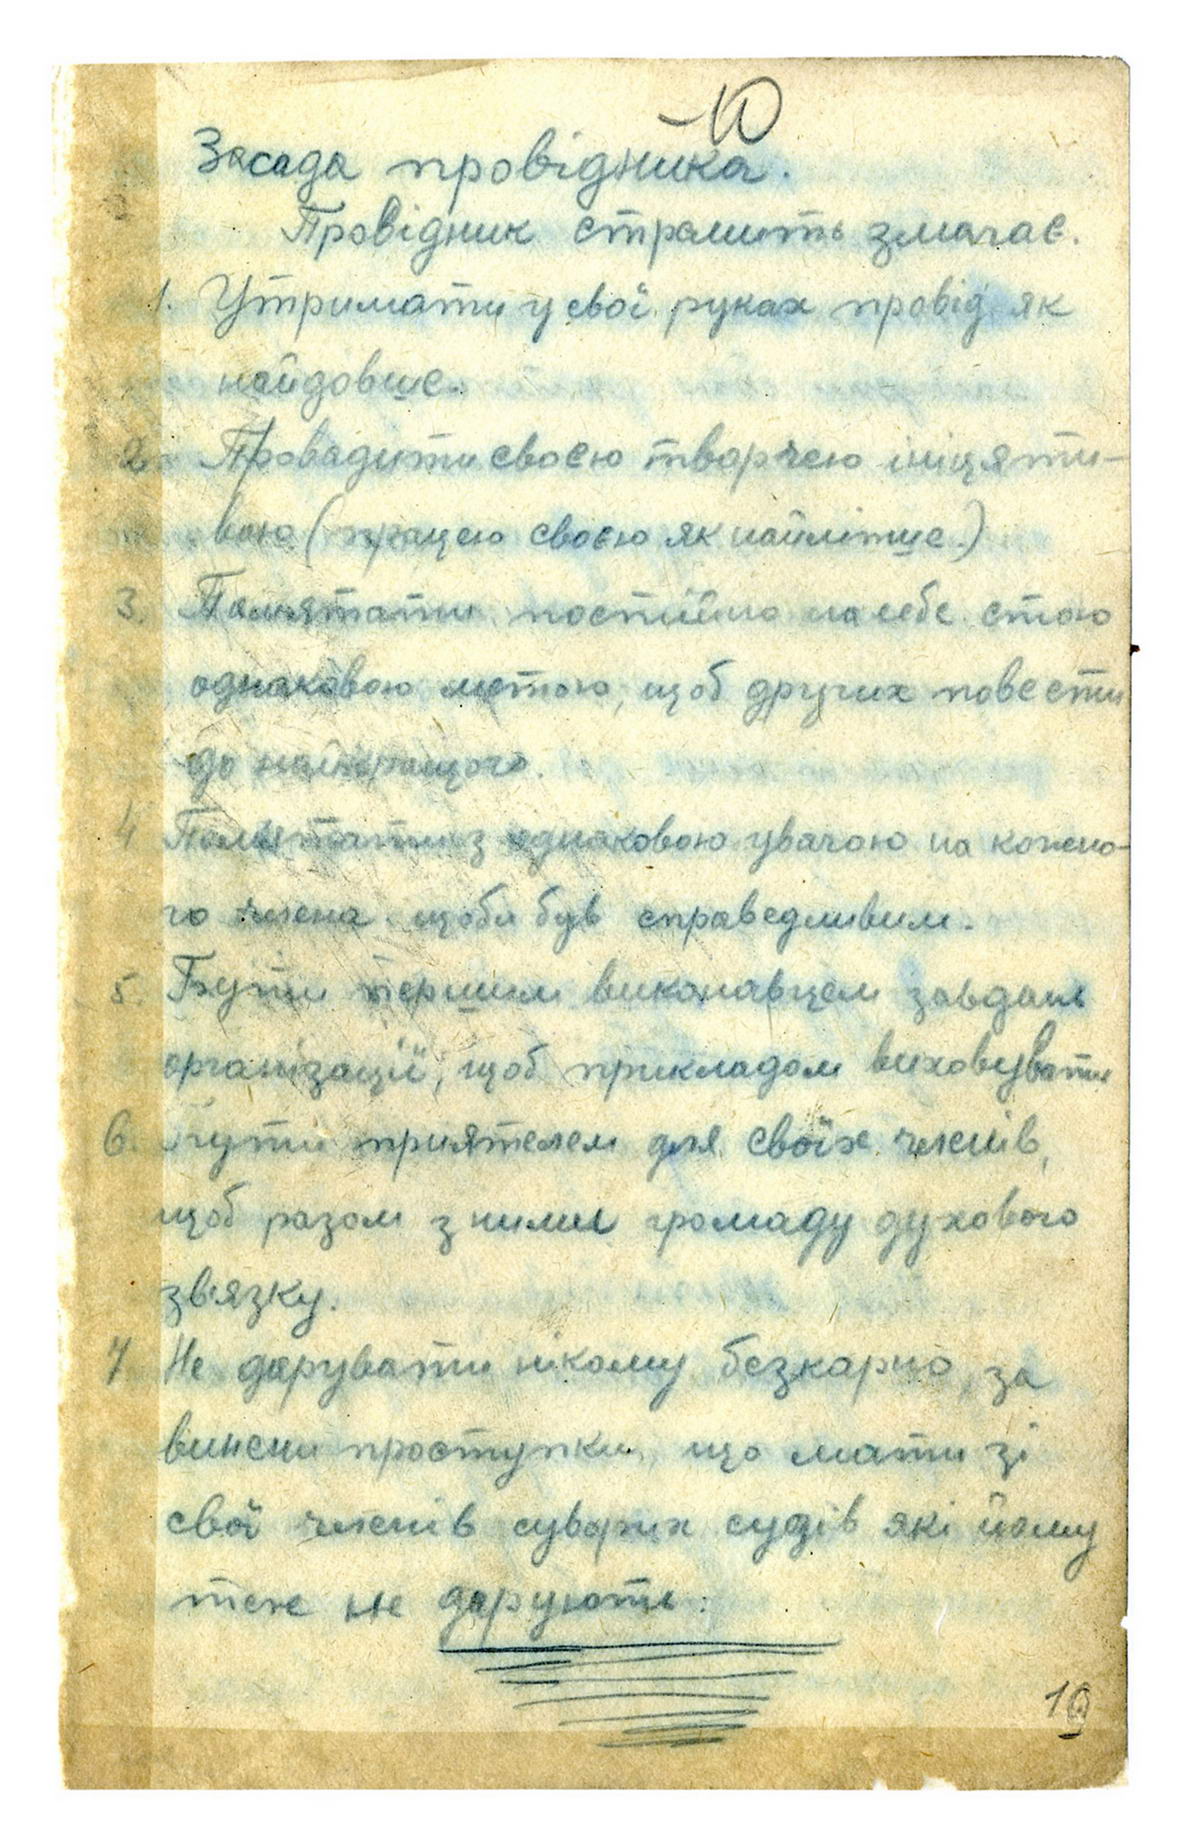 10
Засада провідника.
Провідник стремить змагає.
1. Утримати у свої руках провід як
найдовше.
2. Провадити своєю творчею ініцяти-
вою (працею своєю як найліпше.)
3. Памятати постійно на себе стою
однаковою метою, щоб других повести
до найкращого.
4 Памятати з однаковою увагою на кожно-
го члена щоби був справедливим.
5. Бути першим виконавцем завдань
організації, щоб прикладом виховувати
6. Бути приятелем для своїх членів,
щоб разом з ними громаду духового
звязку.
7 Не дарувати нікому безкарно, за
винени проступки, що мати зі
свої членів суворих судів які йому
теж не дарують.
10